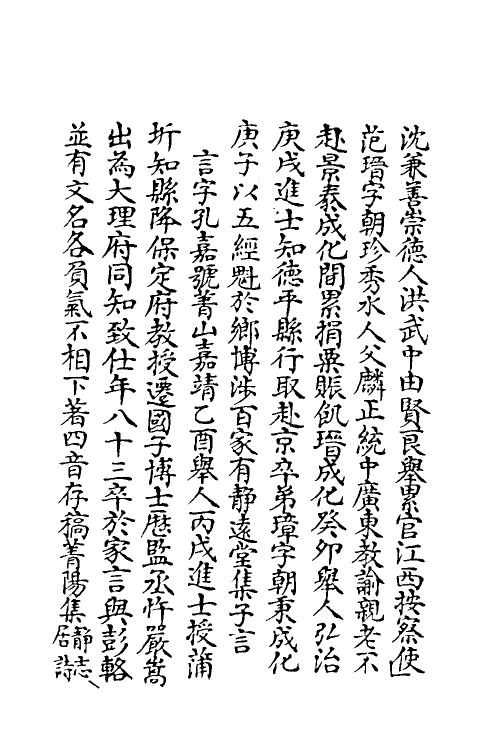 沈兼善崇德人洪武中由賢良舉累官江西按察使
范瑨字朝珍秀水人父麟正統中廣東教諭親老不
赴景泰成化間累捐粟賑飢瑨成化癸卯舉人弘治
庚戌進士知德平縣行取赴京卒弟璋字朝秉成化
庚子以五經魁於鄉博涉百家有靜遠堂集子言
言字孔嘉號菁山嘉靖乙酉舉人丙戌進士授蒲
圻知縣降保定府教授遷國子博士歷監丞忤嚴嵩
出為大理府同知致仕年八十三卒於家言與彭輅
並有文名各負氣不相下著四音存稿菁陽集靜志
居詩